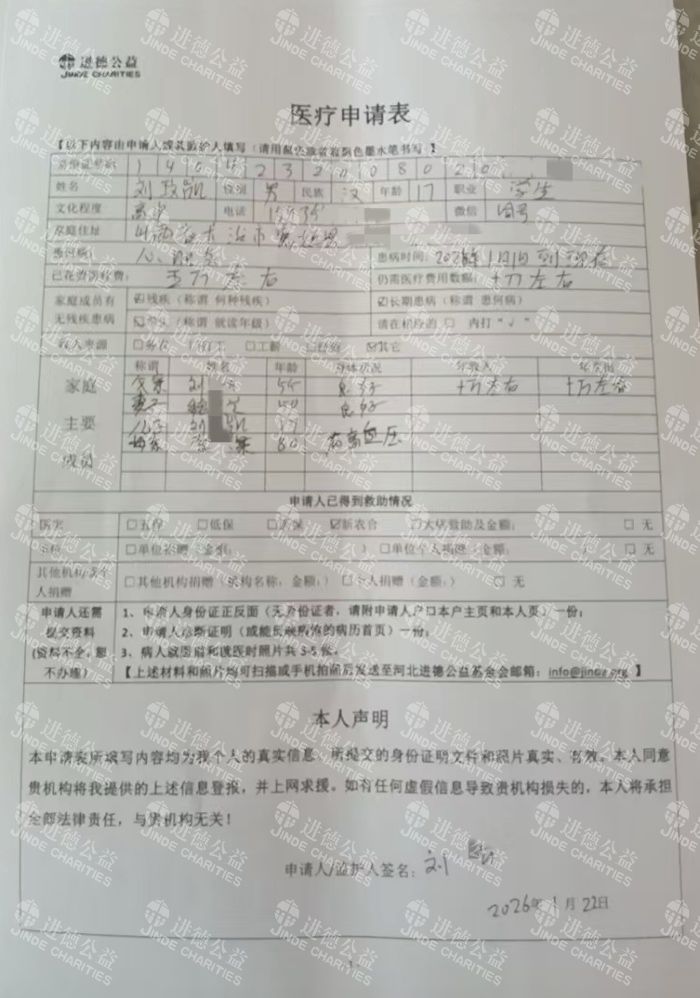 进德公益
JINDE CHARITIES
医疗申请表
【以下内容由申请人或其监护人填写（请用黑色或蓝色墨水笔书写）】
身份证号码
姓名 性别 男 民族 汉 年龄 17 职业 学生
文化程度 高中 电话 微信 同号
家庭住址 山西省长治市
患何病： 患病时间：2026年1月1日到现在
已花费医疗费：五万左右 仍需医疗费用数额：十万左右
家庭成员有 ☑残疾（称谓 何种残疾） ☑长期患病（称谓 患何病）
无残疾患病 学生（称谓 就读年级） 请在相应的 □ 内打“√”
收入来源 □务农 □打工 □工薪 □经商 ☑其它
称谓 姓名 年龄 身体状况 年收入 年支出
家庭 刘 54 良好 十万左右 十万左右
主要 妻子 50 良好
儿子 刘 17
成员 80 高血压
申请人已得到救助情况
医实 □五保 □低保 □医保 ☑新农合 □大病救助及金额： □ 无
□单位捐赠（金额： ） □单位个人捐赠（金额： ） □ 无
其他机构或个人捐赠 □其他机构捐赠（机构名称，金额：） □个人捐赠（金额：） □ 无
申请人还需 1、申请人身份证正反面（无身份证者，请附申请人户口本户主页和本人页）一份；
提交资料 2、申请人诊断证明（或能反映病情的病历首页）一份；
（资料不全，恕 3、病人就医前和就医时照片共 3-5 张。
不办理） 【上述材料和照片均可扫描或手机拍照后发送至河北进德公益基金会邮箱：info@jinde.org 】
本人声明
本申请表所填写内容均为我个人的真实信息，所提交的身份证明文件和照片真实、有效。本人同意
贵机构将我提供的上述信息登报，并上网求援。如有任何虚假信息导致贵机构损失的，本人将承担
全部法律责任，与贵机构无关！
申请人/监护人签名：刘
2026年1月22日